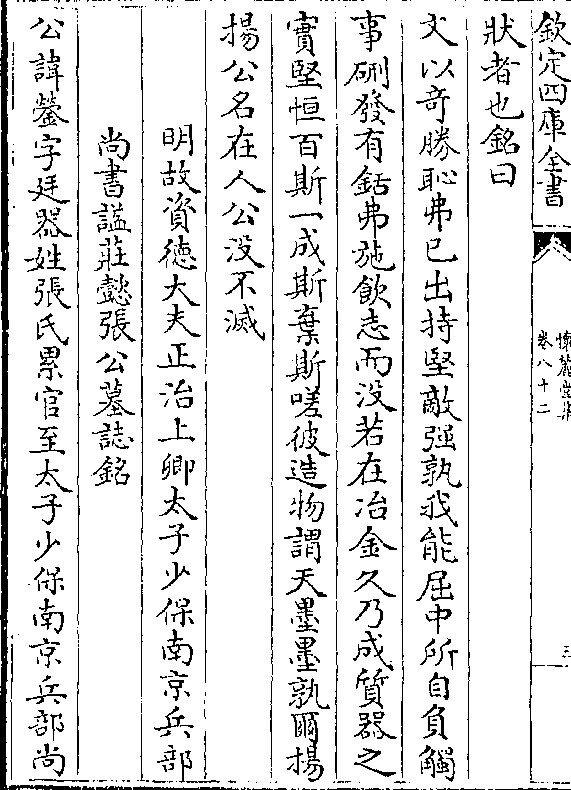 欽定四庫全書
懷麓堂集
卷八十二
三
狀者也銘曰
文以奇勝恥弗已出持堅敵强孰我能屈中所自負觸
事硎發有銛弗施飲志而没若在冶金久乃成質器之
實堅恒百斯一成斯棄斯嗟彼造物謂天墨墨孰爾揚
揚公名在人公没不滅
明故資德大夫正治上卿太子少保南京兵部
尚書諡莊懿張公墓誌銘
公諱鎣字廷器姓張氏累官至太子少保南京兵部尚